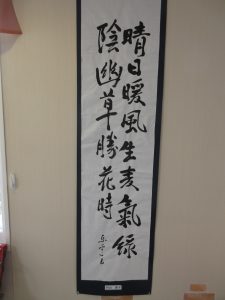 晴日暖風生麦氣緑
陰幽草勝花時